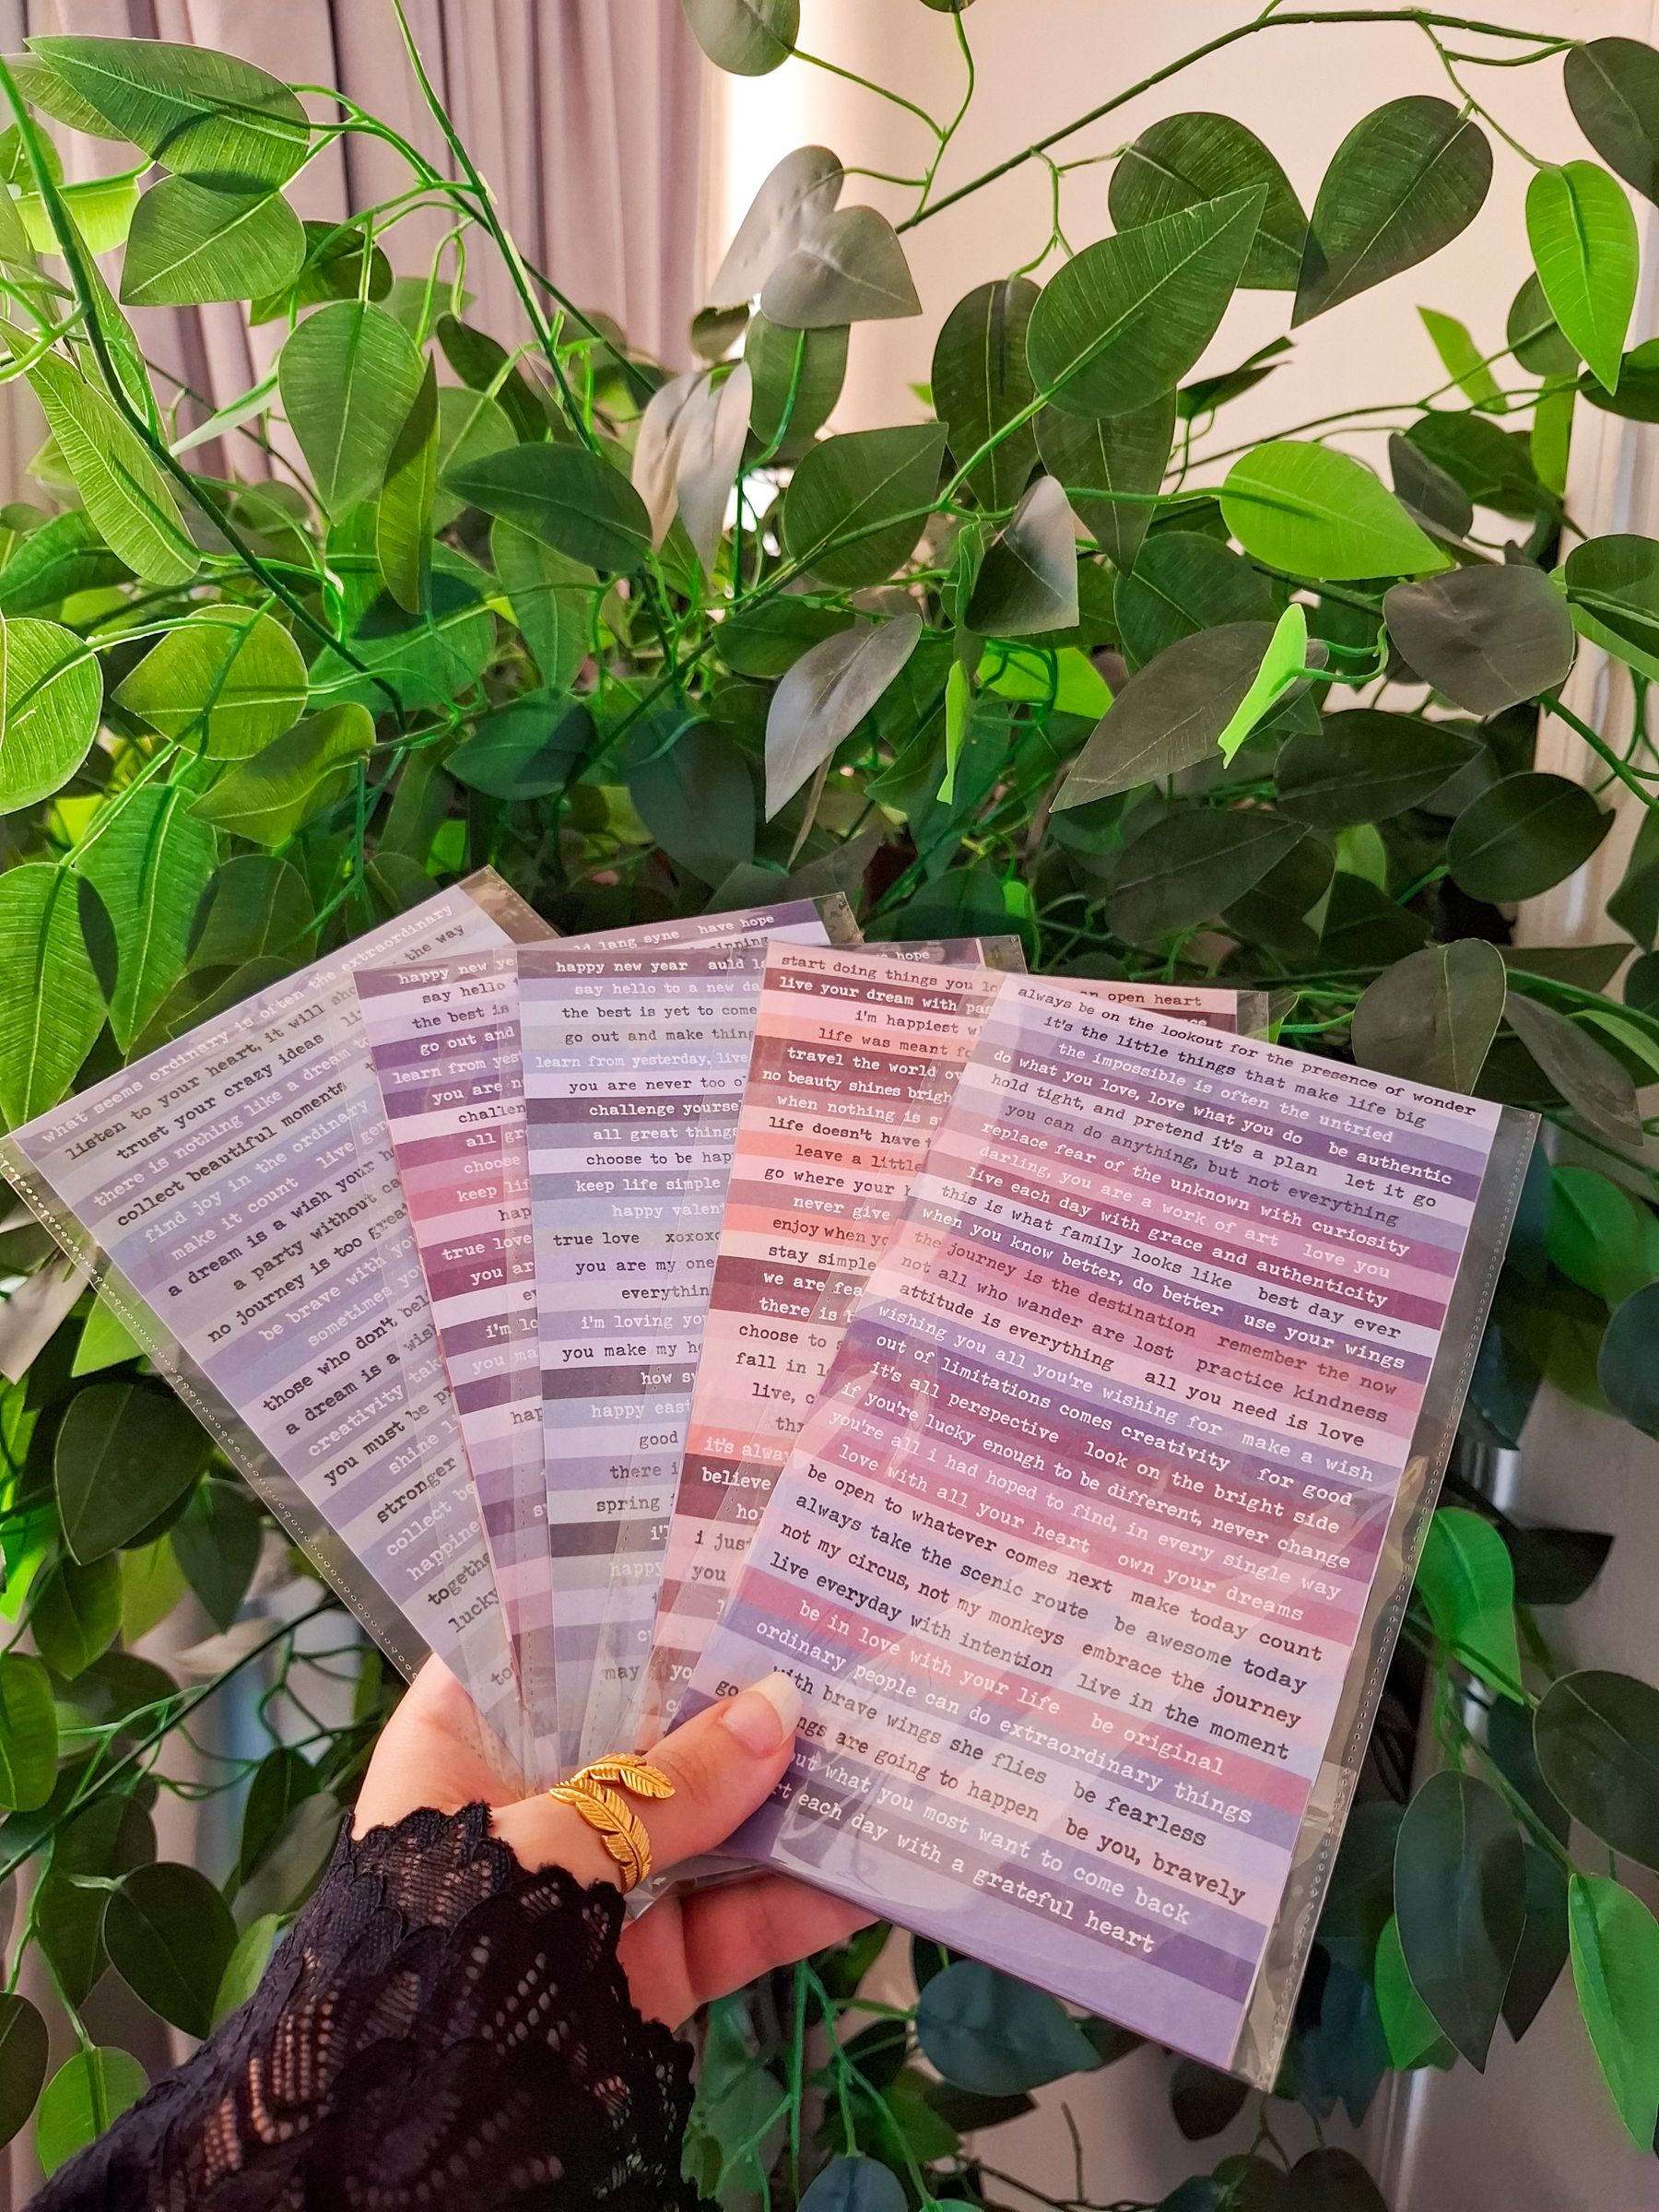 what seems ordinary is often the extraordinary
listen to your heart, it will the way
trust your crazy ideas
there is nothing like a dream to
collect beautiful moments
find joy in the ordinary
make it count live
a dream is a wish your
a party without
no journey is too great
be brave with
sometimes
those who don't
a dream is a
creativity
you must be
shine
stronger
collect
lucky
happy new
say hello
the best is
go out and
learn from
you are
all
choose
keep
true love
you are
i'm
you
lang syne have hope
happy new year auld
say hello to a new
the best is yet to come
go out and make
learn from yesterday, live
you are never too
challenge
all great
choose to be
keep life simple
happy
true love
you are my one
i'm loving
you make my
how
happy
good
there
spring
happy
may
hope
start doing things you
live your dream with
i'm happiest
life was meant
travel the world
no beauty shines
when nothing is
life doesn't have
leave a little
go where your
never give
enjoy when
stay simple
we are
there is
choose to
fall in
live,
it's
believe
i
you
open heart
always be on the lookout for the presence of wonder
it's the little things that make life big
the impossible is often the untried
do what you love, love what you do be authentic
hold tight, and pretend it's a plan let it go
you can do anything, but not everything
replace fear of the unknown with curiosity
darling, you are a work of art love you
live each day with grace and authenticity
this is what family looks like best day ever
when you know better, do better use your wings
the journey is the destination remember the now
not all who wander are lost practice kindness
attitude is everything all you need is love
wishing you all you're wishing for make a wish
out of limitations comes creativity for good
it's all perspective look on the bright side
if you're lucky enough to be different, never change
you're all i had hoped to find, in every single way
love with all your heart own your dreams
be open to whatever comes next make today count
always take the scenic route be awesome today
not my circus, not my monkeys embrace the journey
live everyday with intention live in the moment
be in love with your life be original
ordinary people can do extraordinary things
with brave wings she flies be fearless
are going to happen be you, bravely
what you most want to come back
each day with a grateful heart